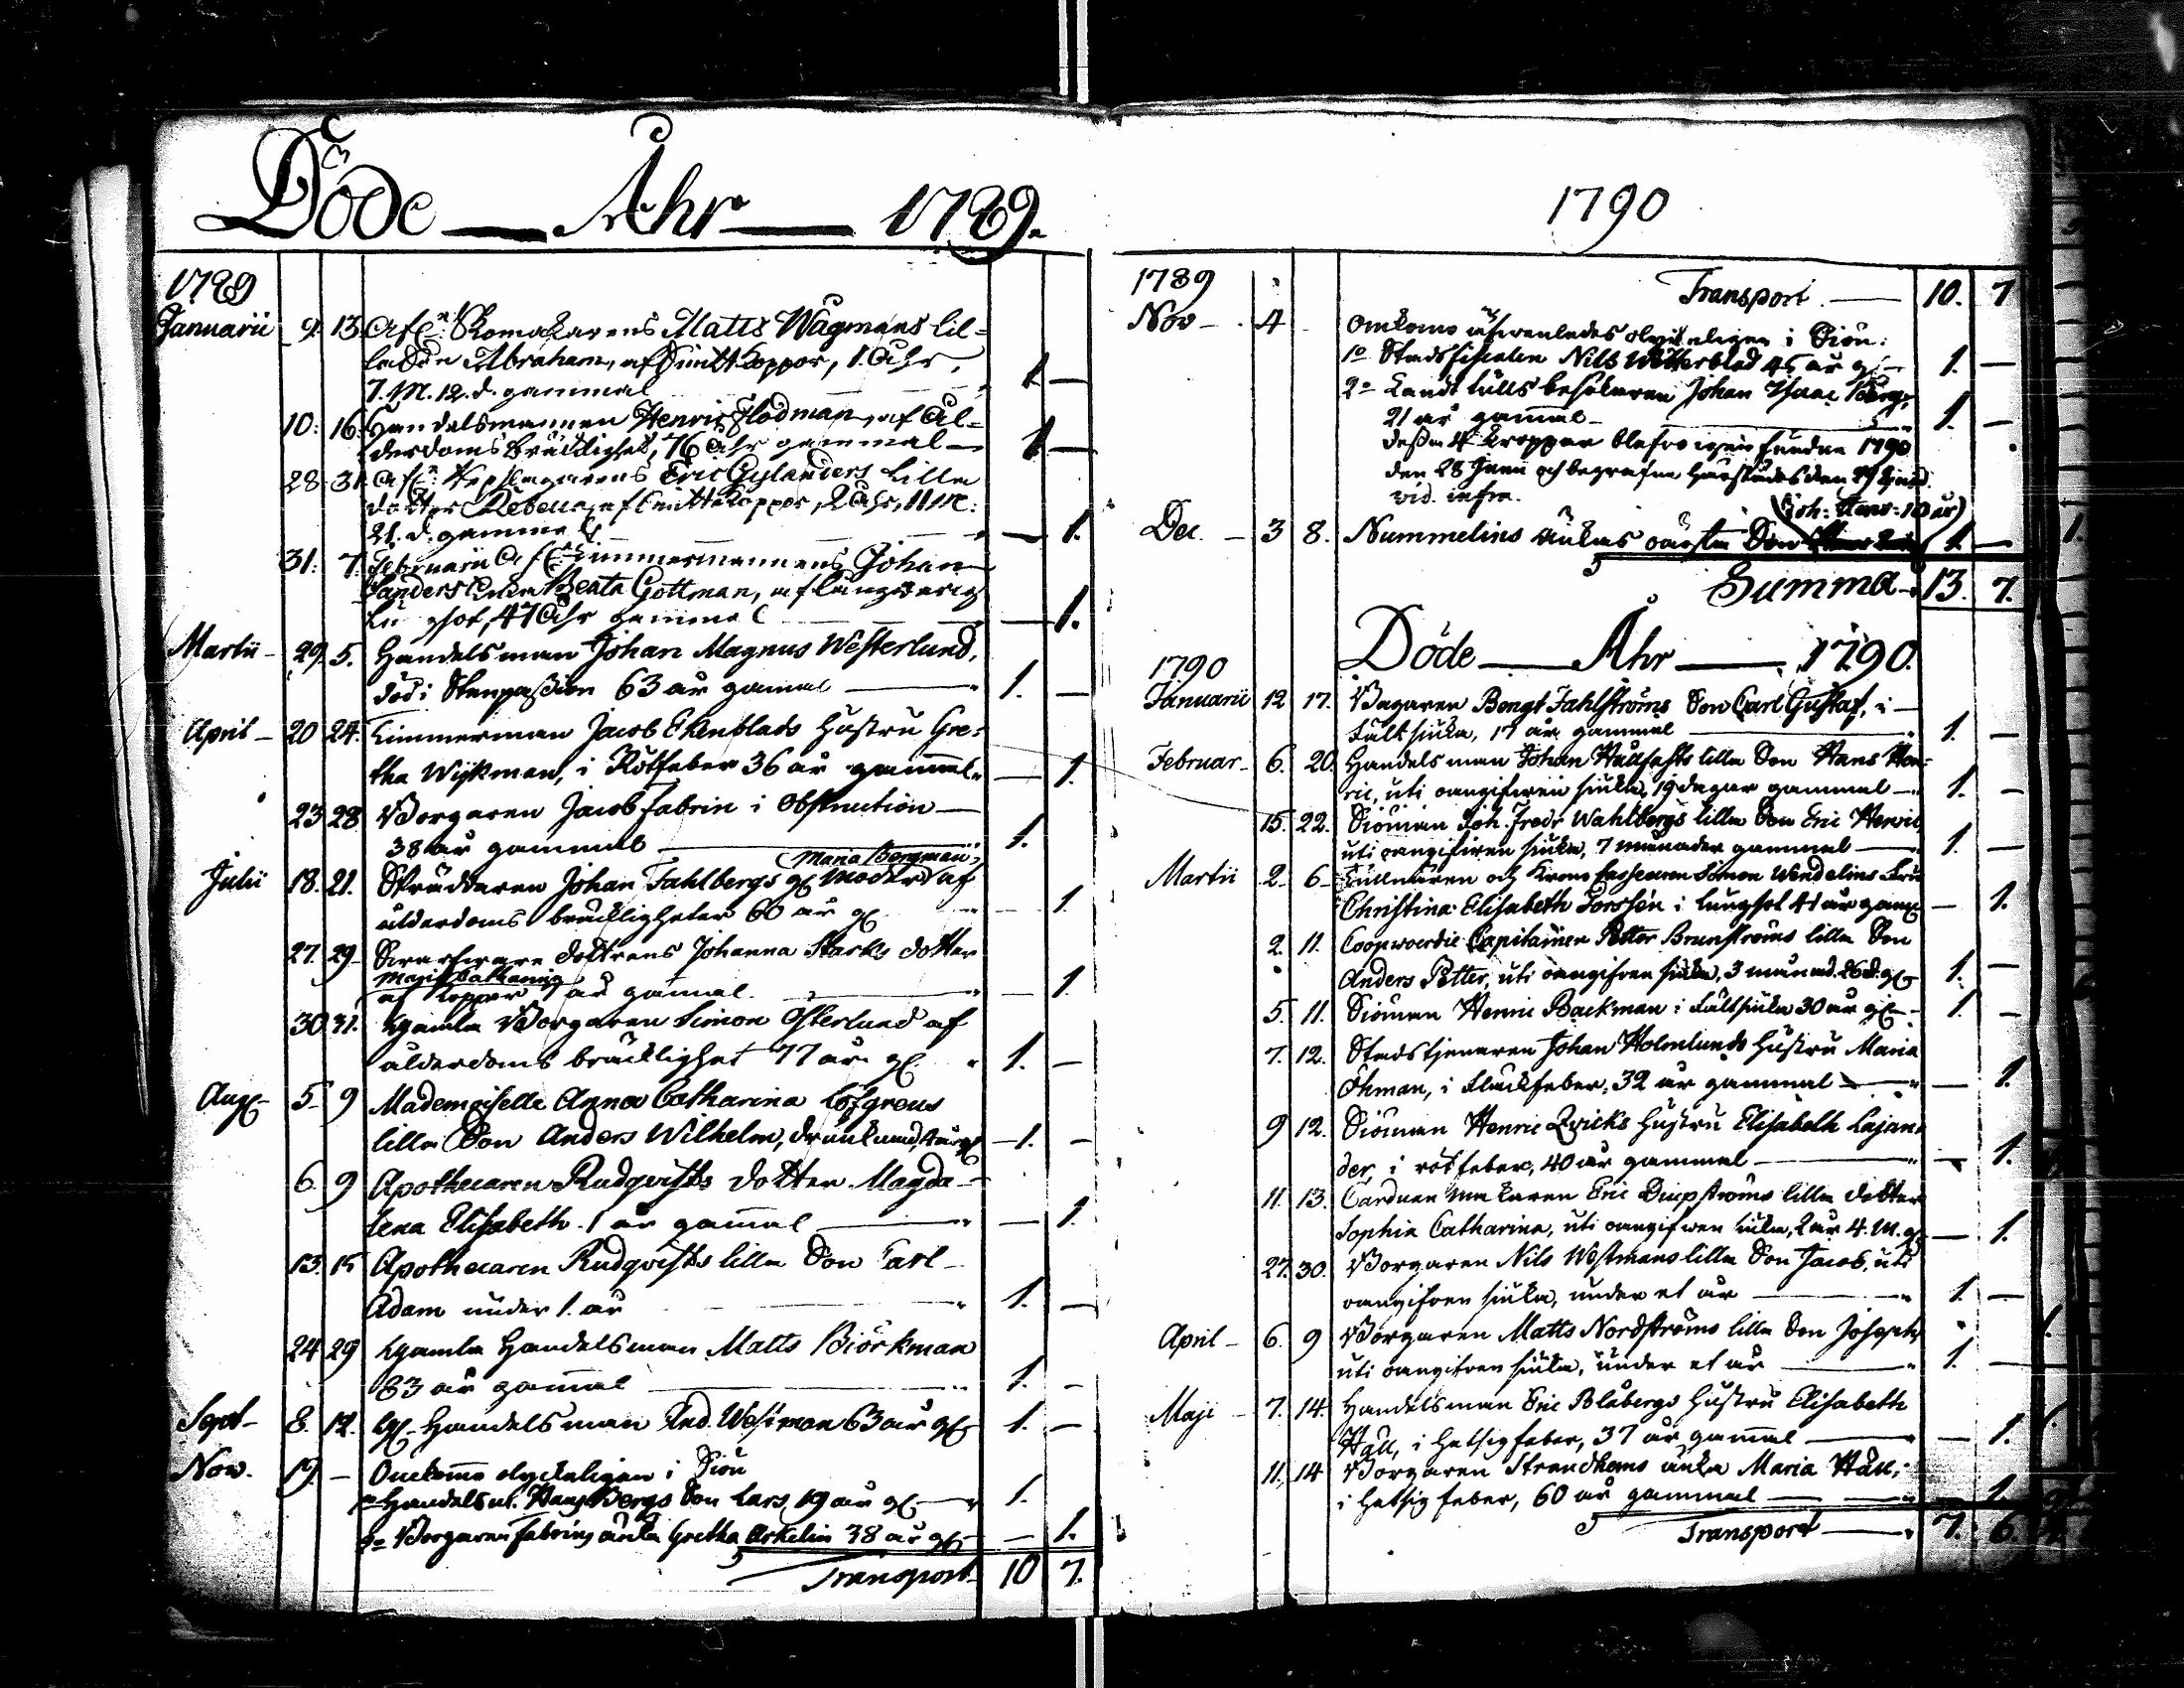 Döde — Åhr — 1789.
1789
Januarii 9. 13. Afl: Skomakarens Matts Wågmans lil=
la Son Abraham, af Smittkoppor, 1. Åhr,
7. M. 12. d. gammal 1. —
10. 16. Handelsmannen Henric Flodman, af Ål=
derdoms bräcklighet, 76 Åhr gammal — 1 —
28. 31. Afl: Repslagarens Eric Gylanders lilla
dotter Rebecca, af Smittkoppor, 2 Åhr, 11 M:
21. d. gammal — 1.
31. 7. Februarii Afl. Timmermannens Johan
Sanders Enka Beata Gottman, af långwarig
47 Åhr gammal — 1.
Martii — 29. 5. Handelsman Johan Magnus Westerlund,
död i Stenpassion 63 år gamal — 1. —
April — 20 24. Timmerman Jacob Ekenblads Hustru Gre=
tha Wijkman, i Rötfeber 36 år gammal — 1.
23 28 Borgaren Jacob Fabrin i Obstruction —
38 år gammal — 1.
(Maria Bergman)
Julii 18. 21. Skräddaren Johan Fahlbergs gl. moder af
ålderdoms bräckligheter 60 år gl. — 1.
27. 29. Swarfware dottrens Johanna Starks dotter
Maria Catharina
af koppor 1 år gamal. — 1.
30 31. Gamla Borgaren Simon Österlund af
ålderdoms bräcklighet 77 år gl. 1. —
Aug. 5 9 Mademoiselle Anna Catharina Löfgrens
lilla Son Anders Wilhelm, drunknad, år gl — 1. —
6. 9 Apothecaren Rudqvists dotter Magda=
lena Elisabeth. 1 år gamal — 1.
13. 15 Apothecaren Rudqvists lilla Son Carl
Adam under 1. år 1. —
24 29 Gamla Handelsman Matts Biörkman
83 år gamal — 1. —
Sept — 8. 12. Gl. Handelsman And. Westman 63 år gl 1. —
Nov. 19. — Omkomne olyckeligen i Siön
1o Handelsm. Hans Bergs Son Lars, 19 år gl. — 1.
2o Borgaren Fabrins änka Gretha Arkelin 38 år gl — 1.
Transport 10 7.
1790
1789
Transport. — 10. 7
Nov — 4 Omkomo äfwenledes olyckeligen i Siön:
1o Stadsfiscalen Nils Wetterblad 45 år gl — 1. —
2o Landt tulls besökaren Johan Isaac Berg,
21 år gammal — 1. —
Dessa 4 kroppar blefwo igenfundna 1790
den 28 Junii och begrafne härstädes den 29 ejusd.
vid. infra.
(Joh: Hans: 10 år)
Dec. — 3 8. Nummelins änkas äldsta Son 1. —
Summa — 13. 7.
Döde — Åhr — 1790.
1790
Januarii 12 17. Bagaren Bengt Fahlströms Son Carl Gustaf, i
Fältsjuka, 17 år gammal — 1. —
Februar — 6. 20. Handelsman Johan Hållfasts lilla Son Hans Hen=
ric, uti oangifwen sjuka, 19 dagar gammal — 1. —
15. 22. Siöman Joh. Fredr Wahlbergs lilla Son Eric Henric,
uti oangifwen sjuka, 7 månader gammal — 1. —
Martii 2 — 6 — Tullnären och Krono Cassören Simon Wendelins Fru
Christina Elisabeth Forssén i lungsot 41 år gamal — 1.
2. 11. Coopwoerdie Capitainen Petter Brunströms lilla Son
Anders Petter, uti oangifwen sjuka, 3 månad. 26 d. gl 1. —
5. 11. Siöman Henric Backman i Fältsjuka 30 år gl — 1. —
7. 12. Stadstjenaren Johan Holmlunds Hustru Maria
Öhman, i Fläckfeber, 32 år gammal — 1.
9 12. Siöman Henric Qvicks Hustru Elisabeth Lajan=
der, i rötfeber, 40 år gammal — 1.
11. 13. Carduansmakaren Eric Diupströms lilla dotter
Sophia Catharina, uti oangifwen sjuka, 2 år 4. M. gl — 1.
27. 30. Borgaren Nils Westmans lilla Son Jacob, uti
oangifwen sjuka, under et år — 1. —
April — 6. 9 Borgaren Matts Nordströms lilla Son Joseph
uti oangifwen sjuka, under et år — 1. —
Maji — 7. 14. Handelsman Eric Blåbergs Hustru Elisabeth
Häll, i hetsig feber, 37 år gamal — 1.
11. 14 Borgaren Strandhems änka Maria Häll,
i hetsig feber, 60 år gammal — 1.
Transport — 7. 6.